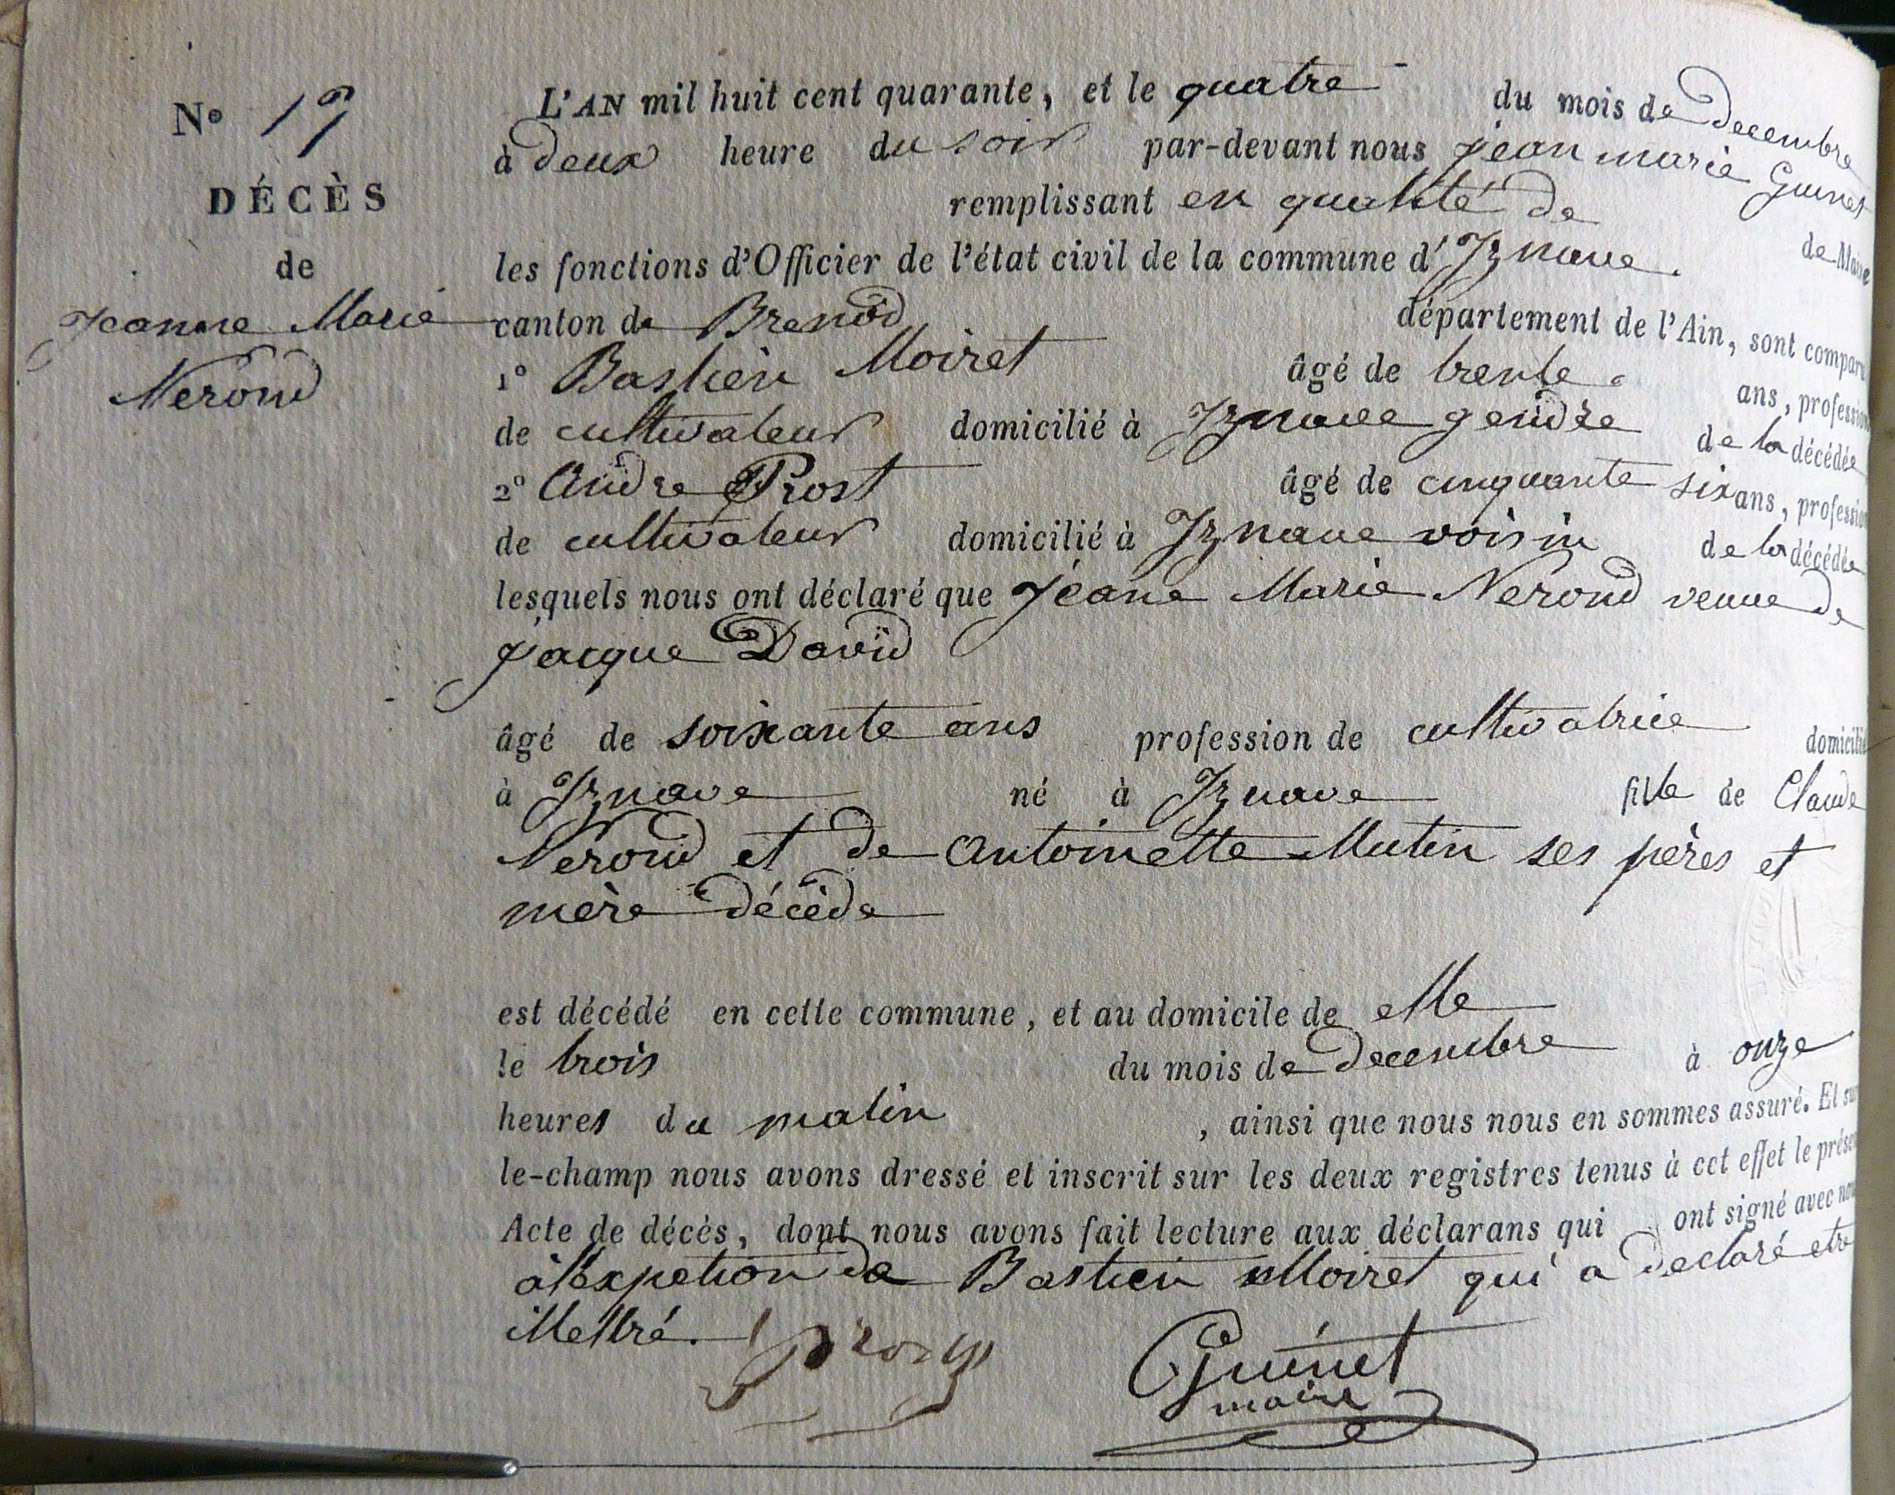 N° 19
DÉCÈS
de
Jeanne Marie
Nerond
L'AN mil huit cent quarante, et le quatre du mois de decembre
à deux heure du soir par-devant nous jean marie Guinet
remplissant en qualité de de Maire
les fonctions d'Officier de l'état civil de la commune d'Iznave.
canton de Brenod département de l'Ain, sont comparu
1° Bastien Moiret âgé de trente ans, profession
de cultivateur domicilié à Iznave gendre de la décédée
2° Andre Prost âgé de cinquante six ans, profession
de cultivateur domicilié à Iznave voisin de la décédée
lesquels nous ont déclaré que Jeane Marie Nerond veuve de
Jacque David
âgé de soixante ans profession de cultivatrice domicilié
à Iznave né à Iznave fille de Claude
Nerond et de Antoinette Mutin ses pères et
mère décède
est décédé en cette commune, et au domicile de elle
le trois du mois de decembre à onze
heures du matin, ainsi que nous nous en sommes assuré. Et su
le-champ nous avons dressé et inscrit sur les deux registres tenus à cet effet le prése
Acte de décès, dont nous avons fait lecture aux déclarans qui ont signé avec nou
à lexpetion de Bastien Moiret qui a declaré etre
illettré. Prost
Guinet
maire